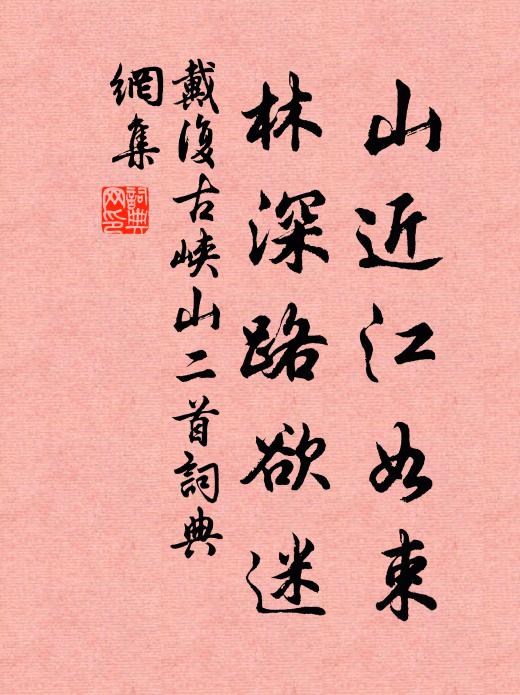 山近江如束
林深路欲迷
戴復古峽山二首詞典
網集
詞典
网印